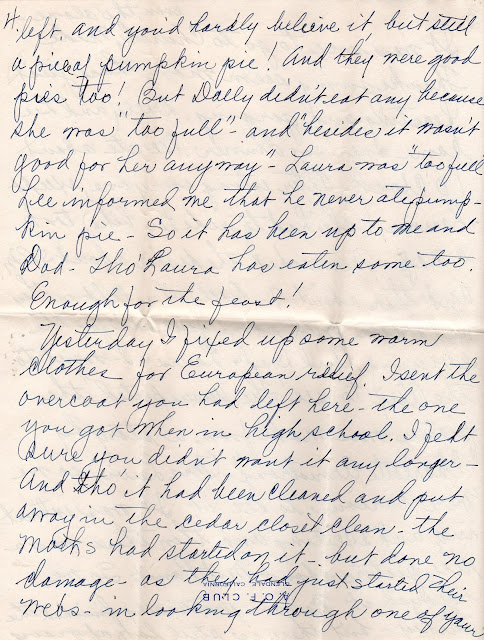 4
left, and you'd hardly believe it, but still
a piece of pumpkin pie! And they were good
pies too! But Dolly didn't eat any because
she was "too full" - and "besides it wasn't
good for her anyway" - Laura was "too full
Lee informed me that he never ate pump-
kin pie - So it has been up to me and
Dad - Tho' Laura has eaten some too.
Enough for the feast!
Yesterday I fixed up some warm
clothes for European relief. I sent the
overcoat you had left here - the one
you got when in high school. I felt
sure you didn't want it any longer -
And tho it had been cleaned and put
away in the cedar closet clean - the
moths had started on it - but done no
damage - as they had just started their
webs - in looking through one of your
F. CLUB
GLENDALE, CALIFORNIA